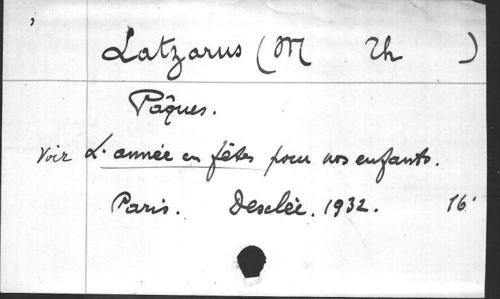 Latzarus (M Th )
Pâques.
Voir L'année en fêtes pour nos enfants.
Paris. Desclée. 1932. 16°